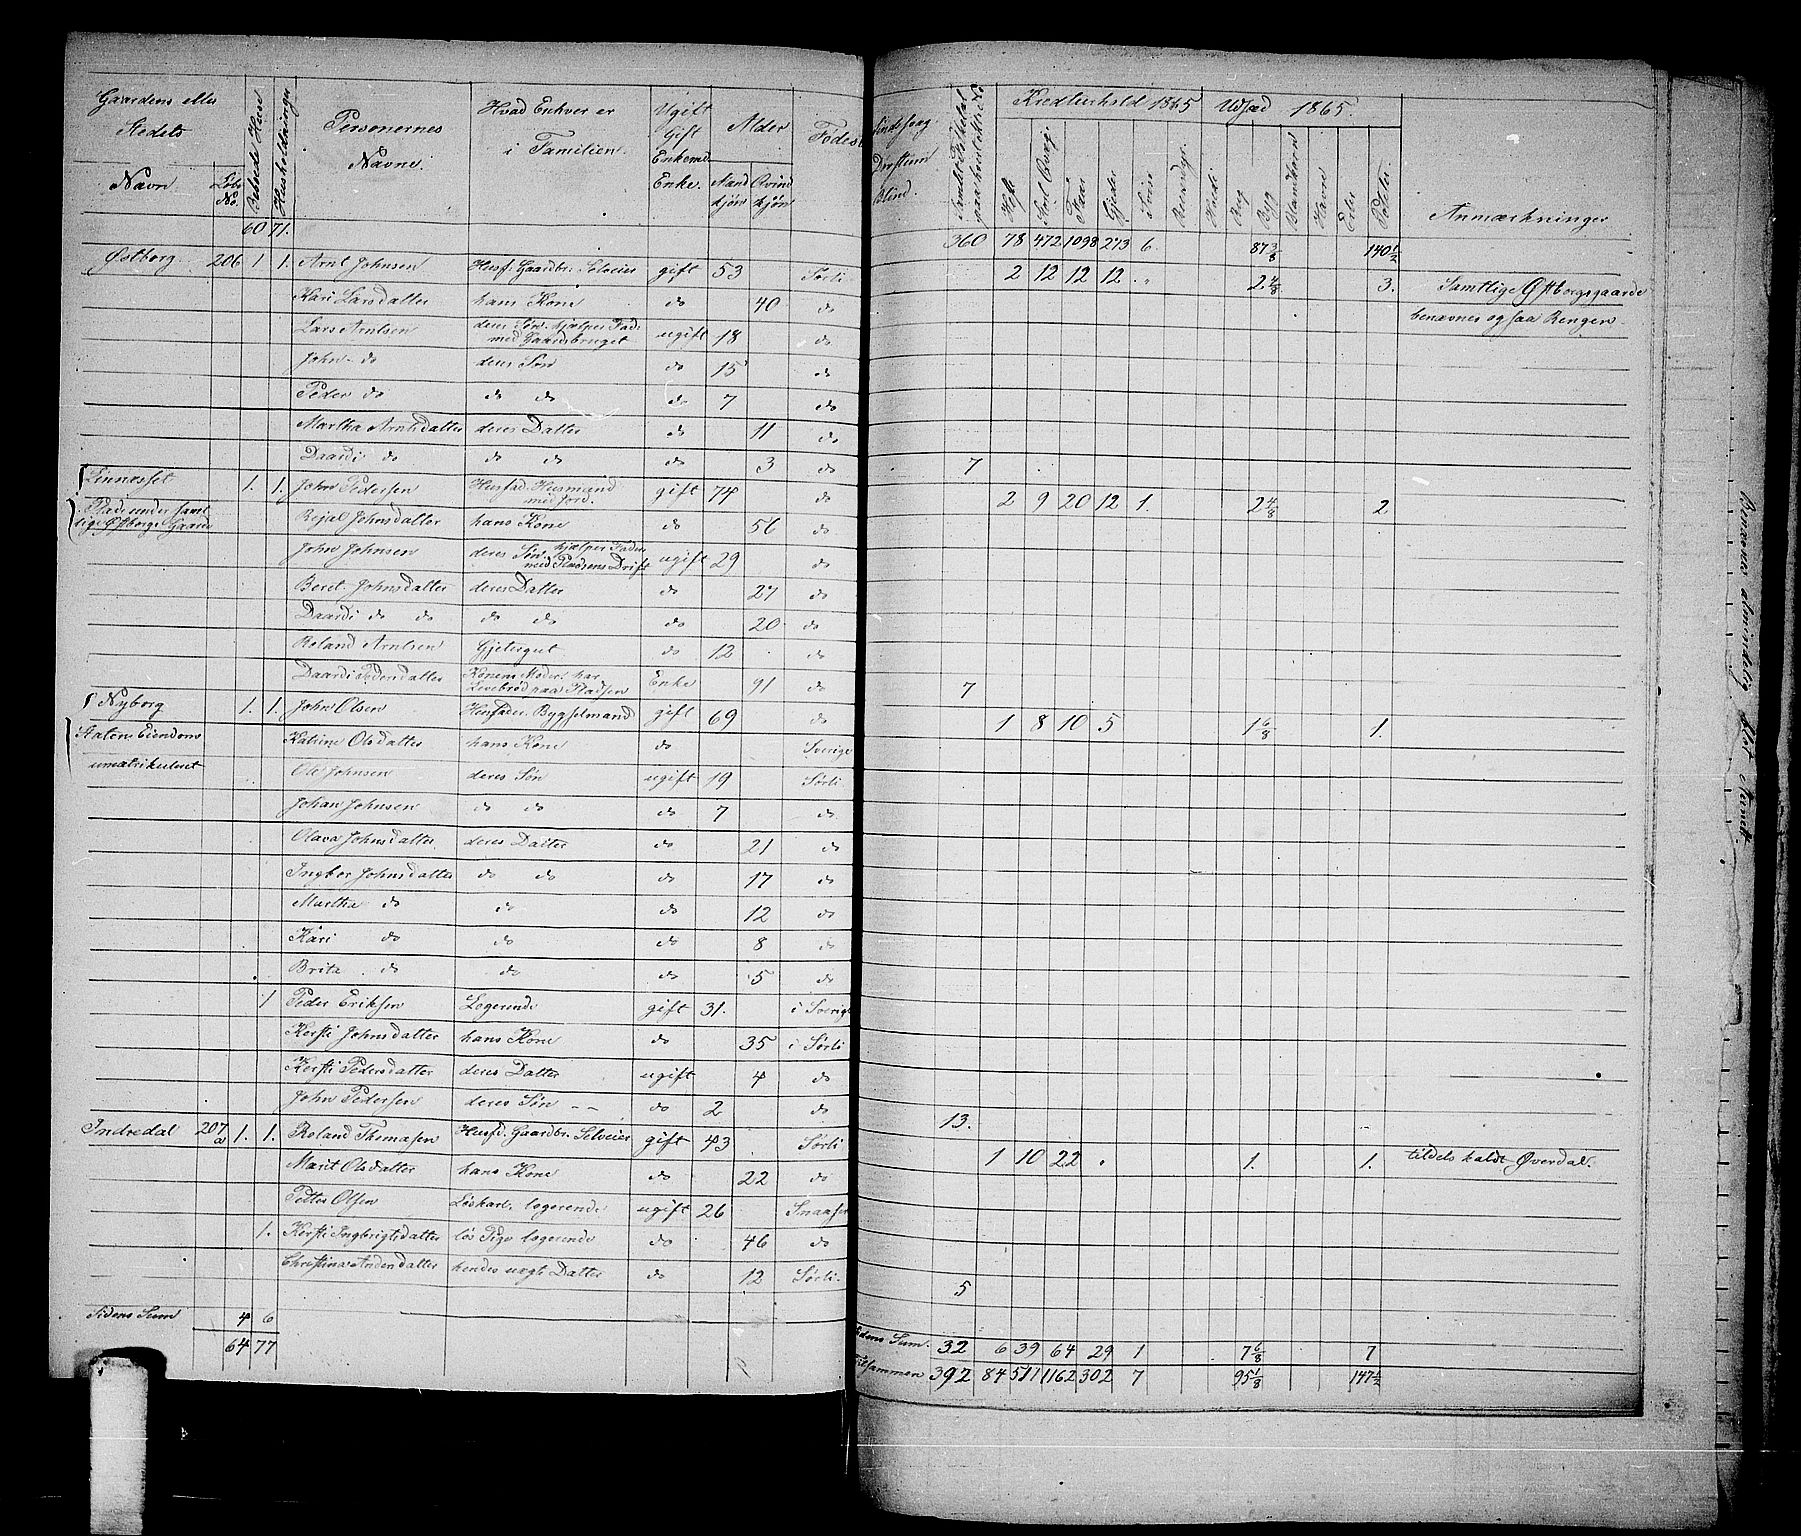 Gaardens eller Stedets
Navn
Løbe No.
Beboede Huse
Husholdninger
Personernes Navne.
Hvad Enhver er i Familien.
Ugift Gift Enkemd. Enke.
Alder
Mand kjøn
Qvind kjøn
60 71.
Østborg 206 1 1. Arnt Johnsen Husf. Gaardbr. Selveier gift 53 Sørli
Kari Larsdatter hans Kone do 40 do
Lars Arntsen deres Søn, hjælper Fad. med Gaardsbruget ugift 18 do
John do deres Søn do 15 do
Peder do do do do 7 do
Martha Arntsdatter deres Datter do 11 do
Daardi do do do do 3 do
Linnæsset 1. 1. John Pedersen Husfad. Husmand med Jord. gift 74 do
Plads under samtlige Østborgs Gaarde Rejal Johnsdatter hans Kone do 56 do
John Johnsen deres Søn. hjælper Fader med Pladsens Drift ugift 29 do
Beret Johnsdatter deres Datter do 27 do
Daardi do do do do do 20 do
Roland Arntsen Gjetergut do 12 do
Daardi Pedersdatter Konens Moder, har Levebrød paa Pladsen Enke 91 do
Nyborg 1. 1. John Olsen Husfader. Bygselmand gift 69 do
Statens Eiendom Katrine Olsdatter hans Kone do Sverige
umatrikuleret Ole Johnsen deres Søn ugift 19 Sørli
Johan Johnsen do do do 7 do
Olava Johnsdatter deres Datter do 21 do
Ingbor Johnsdatter do do do 17 do
Martha do do do 12 do
Kari do do do 8 do
Brita do do do 5 do
1 Peder Eriksen Logerende gift 31. i Sverige
Kersti Johnsdatter hans Kone do 35 i Sørli
Kersti Pedersdatter deres Datter ugift 4 do
John Pedersen deres Søn -- do 2 do
Indredal 207 a 1. 1. Roland Thomasen Husfd. Gaardbr. Selveier gift 43 Sørli
Marit Olsdatter hans Kone do 22 do
Petter Olsen Løskarl, logerende ugift 26 Snaasen
1. Kersti Ingbrigtsdatter løs Pige logerende do 46 do
Christina Andersdatter hendes uægte Datter do 12 Sørli
Sidens Sum 4 6
64 77
Sindssvag Døvstum Blind.
Kreaturhold 1865
Udsæd 1865.
Anmærkninger
Heste
Stort Qvæg
Faar
Gjeder
Sviin
Rensdyr.
Hvede
Rug
Byg
Blandkorn
Havre
Erter
Poteter
360 78 472 1098 273 6 87 3/8 140 1/2
2 12 12 12 2 4/8 3. Samtlige Østborgsgaarde
benævnes ogsaa Rengen
7
2 9 20 12 1. 2 4/8 2
7
1 8 10 5 1 6/8 1.
13.
1 10 22 1. 1. tildels kaldt Øverdal.
5
Sidens Sum. 32 6 39 64 29 1 7 6/8 7
Tilsammen 392 84 511 1162 302 7 95 1/8 147 1/2
Benævnes almindelig